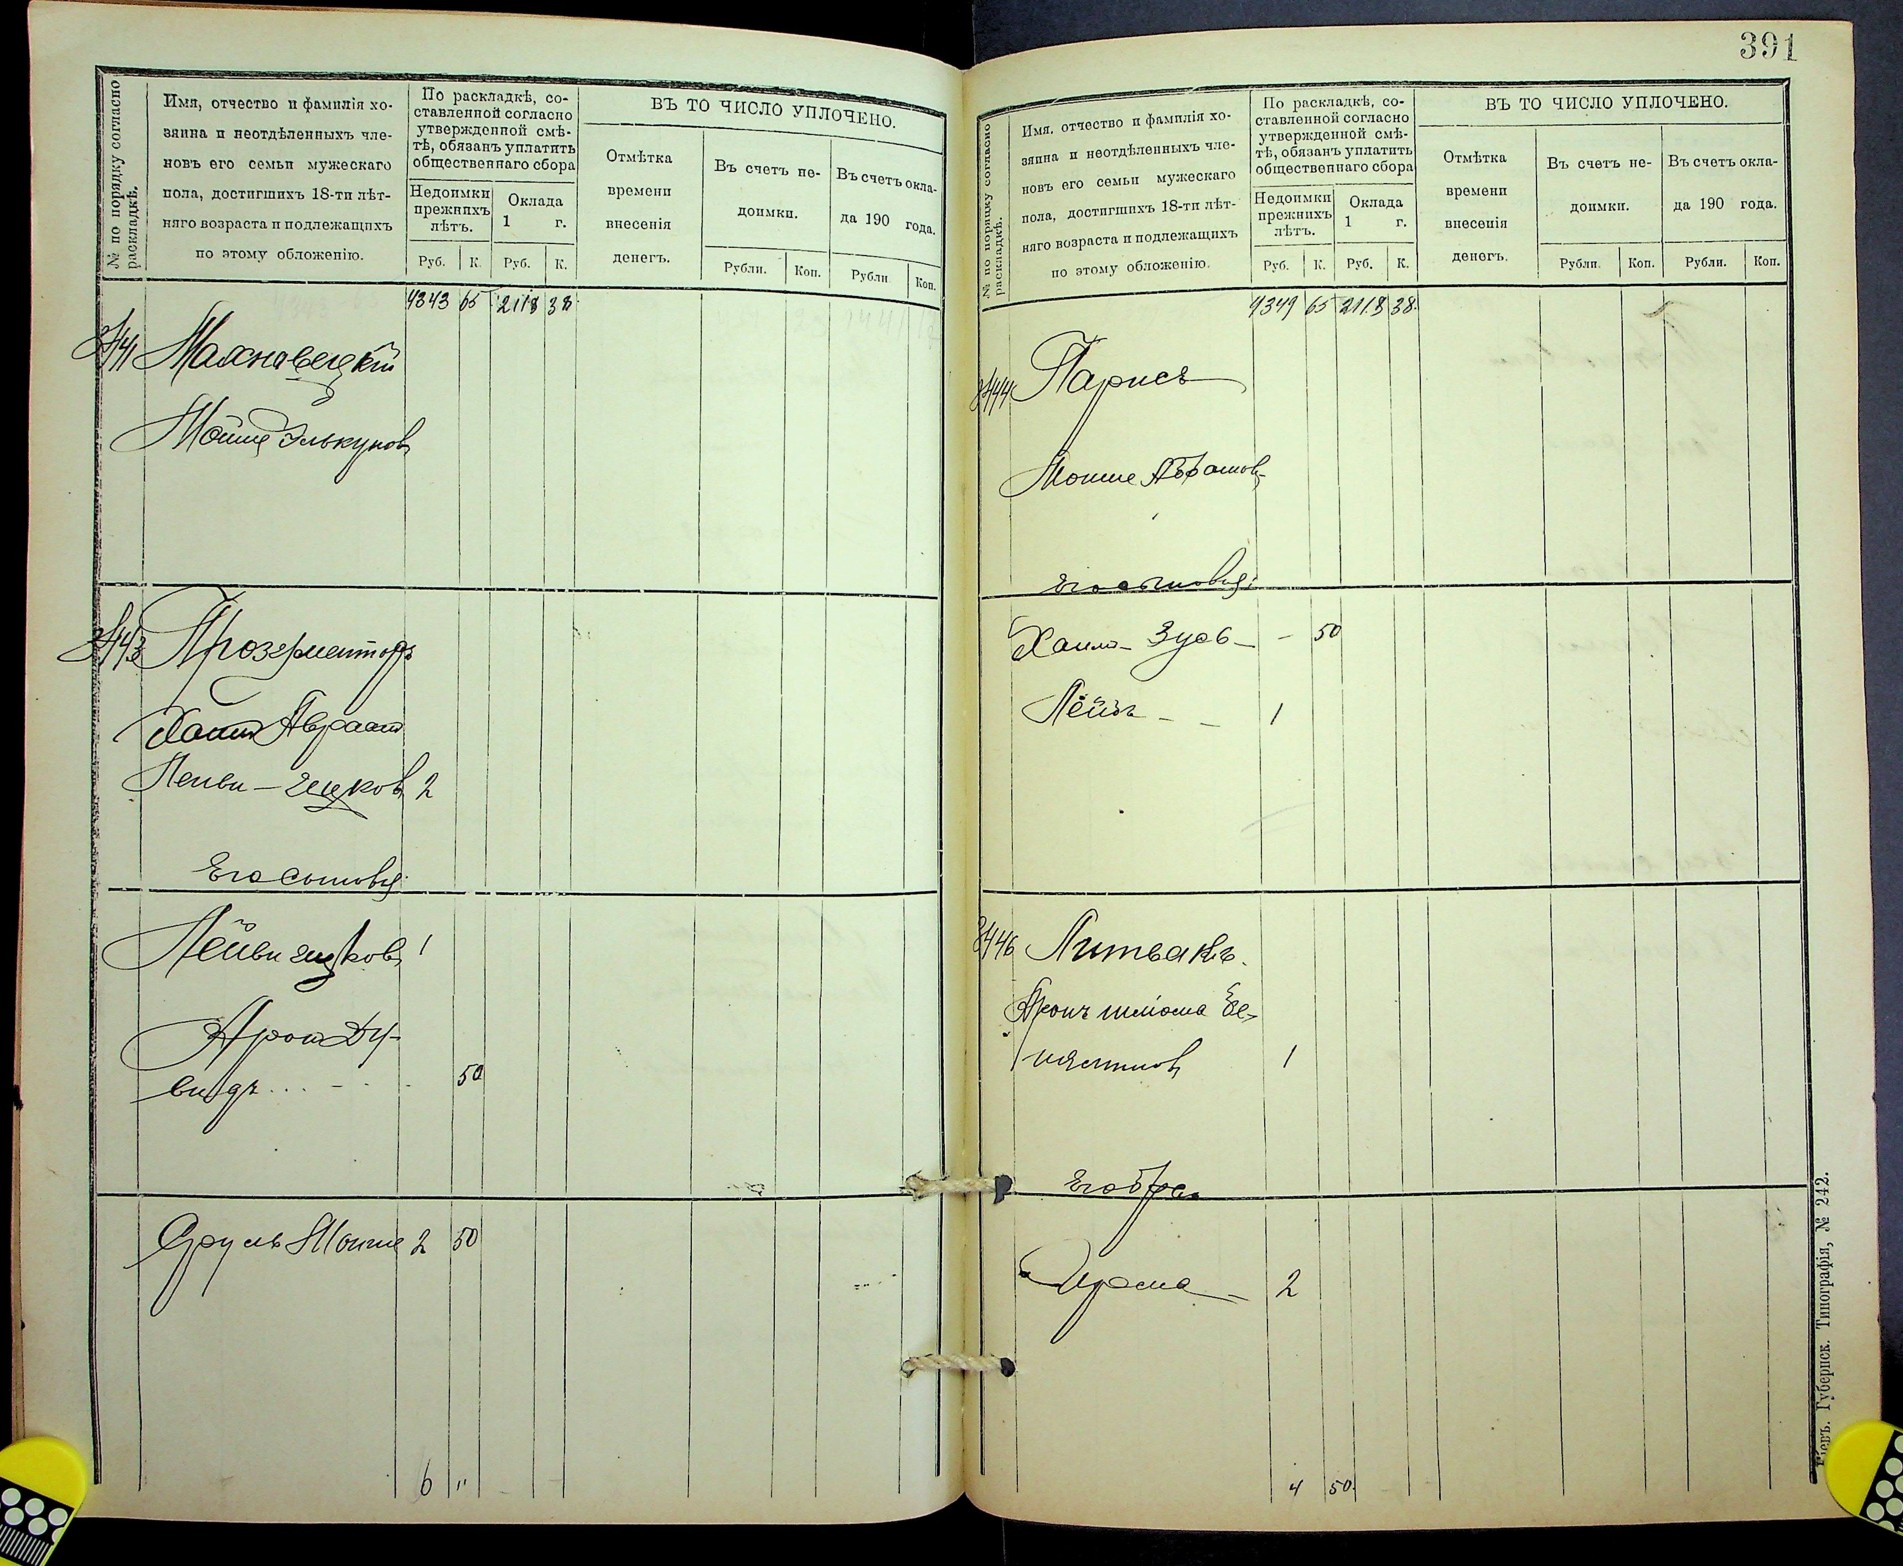 391
№ по порядку согласно раскладкѣ.
Имя, отчество и фамилія хо-
зяина и неотдѣленныхъ чле-
новъ его семьи мужескаго
пола, достигшихъ 18-ти лѣт-
няго возраста и подлежащихъ
по этому обложенію.
По раскладкѣ, со-
ставленной согласно
утвержденной смѣ-
тѣ, обязанъ уплатить
общественнаго сбора
Недоимки
прежнихъ
лѣтъ.
Оклада
1 г.
Руб. К. Руб. К.
ВЪ ТО ЧИСЛО УПЛОЧЕНО.
Отмѣтка
времени
внесенія
денегъ.
Въ счетъ не-
доимки.
Въ счетъ окла-
да 190 года.
Рубли. Коп. Рубли Коп.
4343 65 2118 38
Махновецкій
Мойше Элькунов
Хаим Авраам
Лейви-Ицков 2
Его Сыновья:
Лейви Ицков 1
Арон Ду-
видъ... 50
Сруль Мойше 2 50
6 "
№ по порядку согласно раскладкѣ.
Имя, отчество и фамилія хо-
зяина и неотдѣленныхъ чле-
новъ его семьи мужескаго
пола, достигшихъ 18-ти лѣт-
няго возраста и подлежащихъ
по этому обложенію.
По раскладкѣ, со-
ставленной согласно
утвержденной смѣ-
тѣ, обязанъ уплатить
общественнаго сбора
Недоимки
прежнихъ
лѣтъ.
Оклада
1 г.
Руб. К. Руб. К.
ВЪ ТО ЧИСЛО УПЛОЧЕНО.
Отмѣтка
времени
внесенія
денегъ.
Въ счетъ не-
доимки.
Въ счетъ окла-
да 190 года.
Рубли. Коп. Рубли. Коп.
4349 65 2118 38
Парись
Мошше Абрамов
его сыновья:
Зусь - - 50
Лейбъ - - 1
8446 Литвакъ.
Аронъ Шлёма Бе-
ньяминов 1
Его бра.
Срома - 2
4 50
Кіевъ. Губернск. Типографія, № 242.